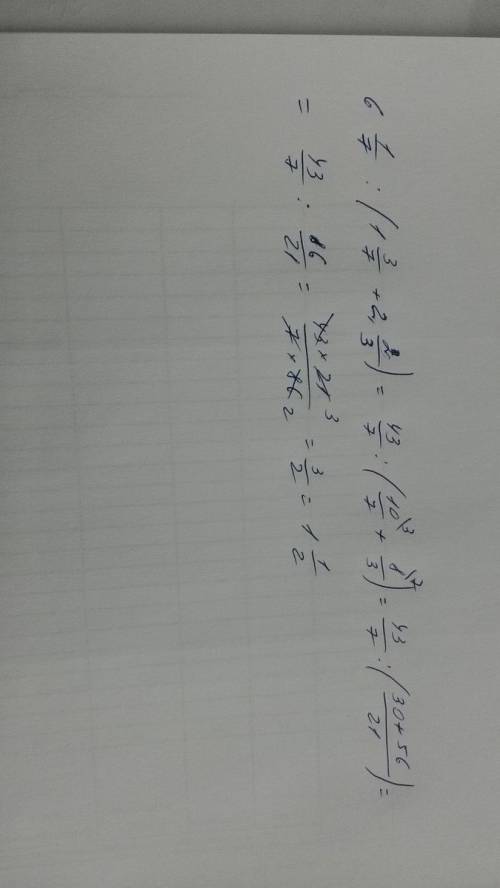 6 1/7 : (1 3/7 + 2 2/3) = 43/7 : (10\3/7 + 8\7/3) = 43/7 : (30+56/21) =
= 43/7 : 86/21 = 43 × 21 3/7 × 86 2 = 3/2 = 1 1/2